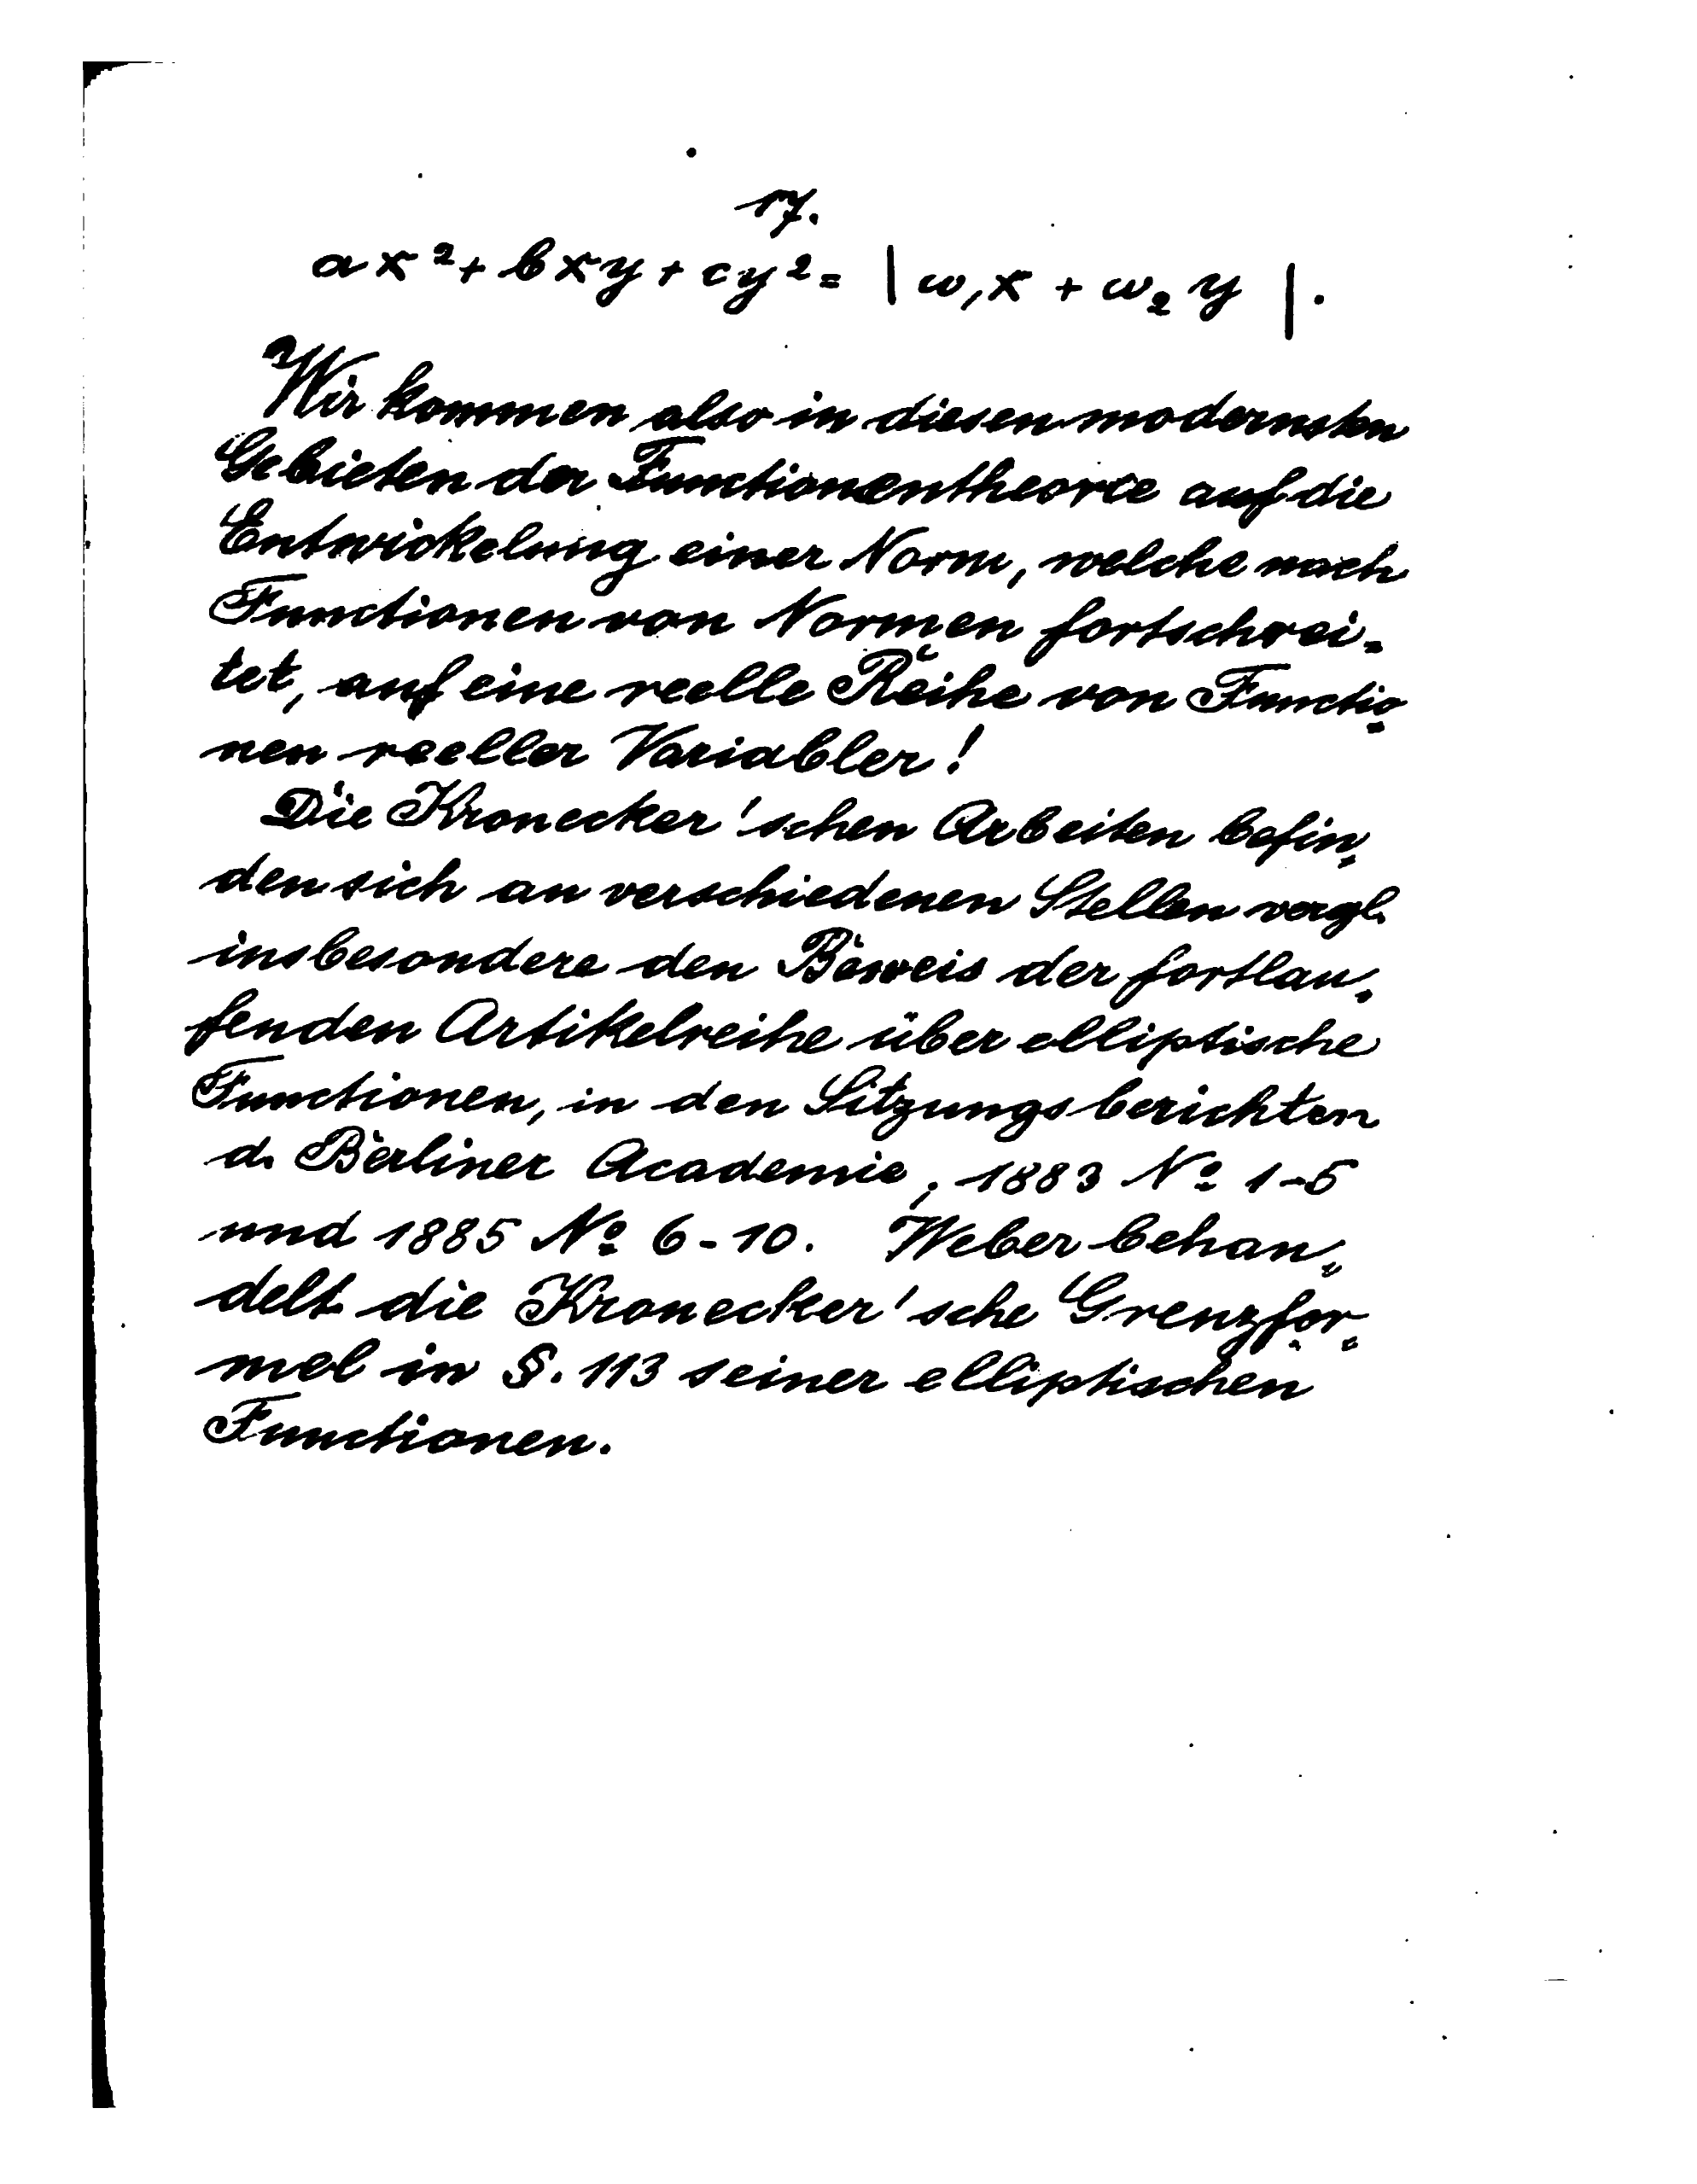 17.
ax² + bxy + cy² = | ω₁x + ω₂y |.
Wir kommen also in diesen modernsten
Gebieten der Functionentheorie auf die
Entwickelung einer Norm, welche nach
Functionen von Normen fortschrei-
tet, auf eine reelle Reihe von Functio-
nen reeller Variabler!
Die Kronecker'schen Arbeiten befin-
den sich an verschiedenen Stellen vergl.
insbesondere den Beweis der fortlau-
fenden Artikelreihe über elliptische
Functionen, in den Sitzungsberichten
d. Berliner Academie, 1883 No 1-5
und 1885 No 6-10. Weber behan-
delt die Kronecker'sche Grenzfor-
mel in §. 113 seiner elliptischen
Functionen.